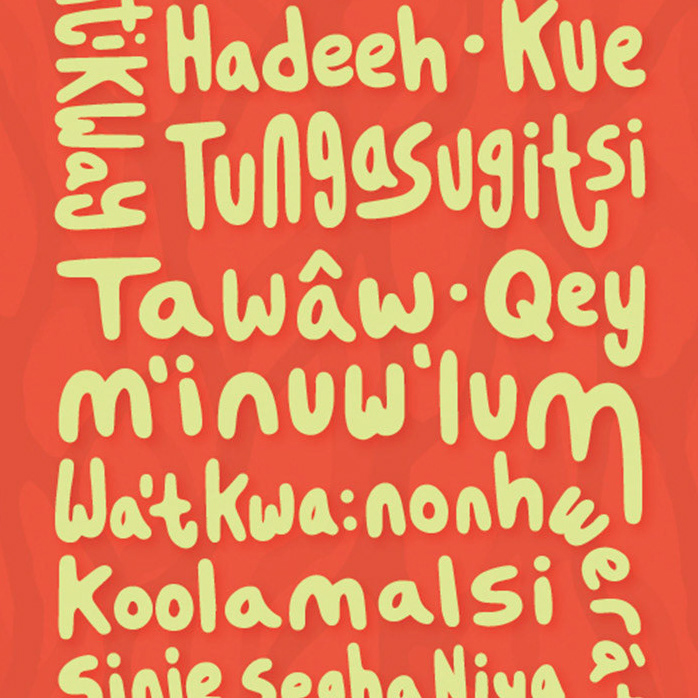 Hadeeh · Kue
Tungasugitsi
Tawâw · Qey
m'i nuw'lum
Wa'tkwa:nonhwerā
Koolamalsi
Sinie segha Niya